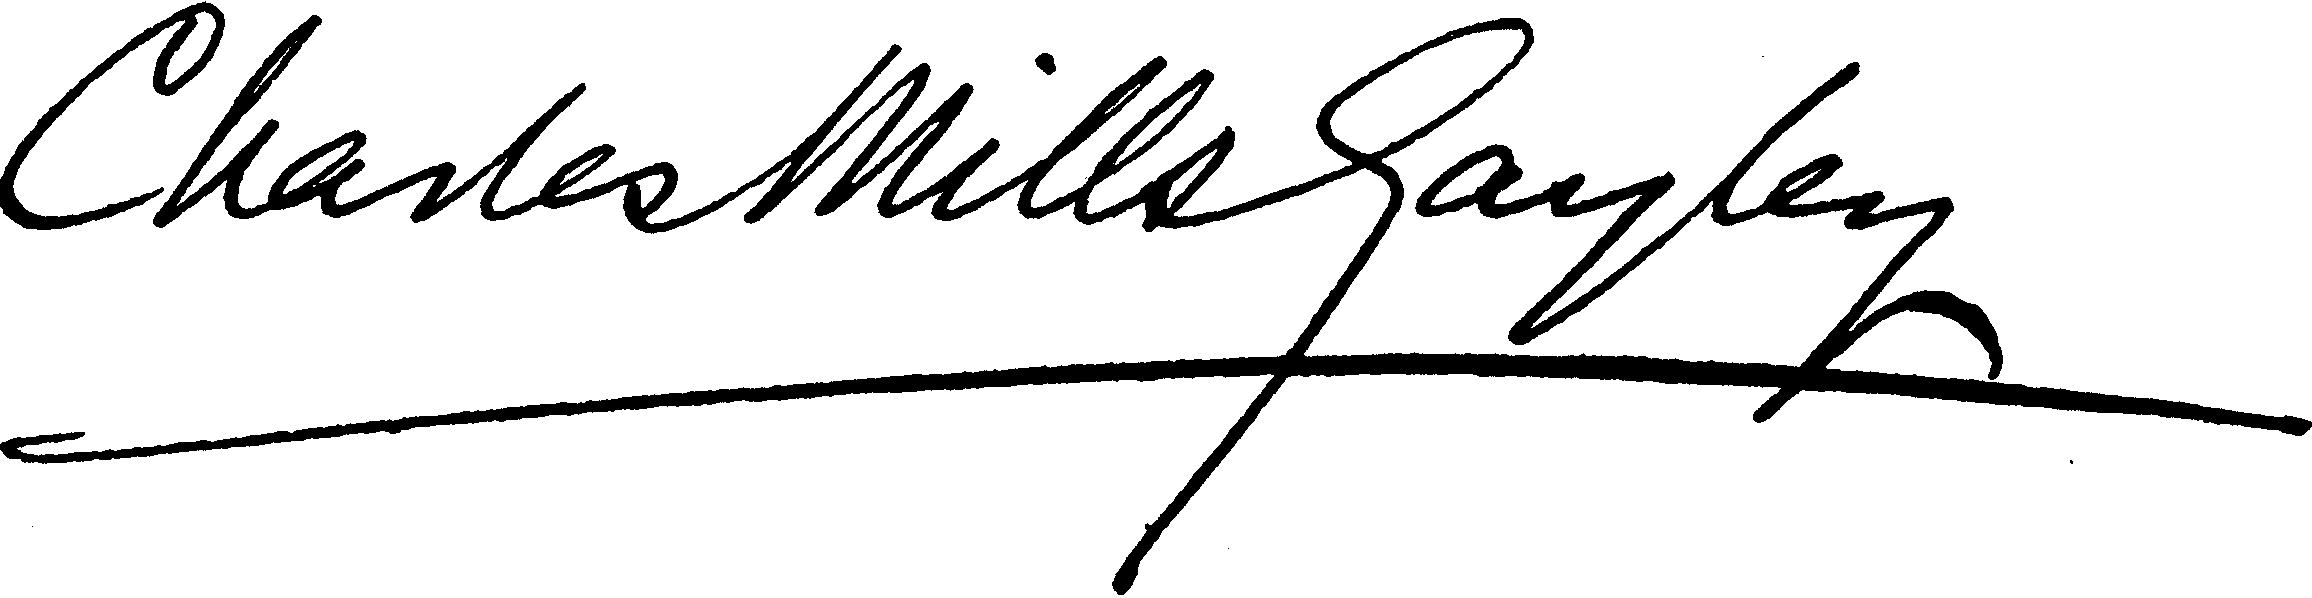 Charles Mills Gayley